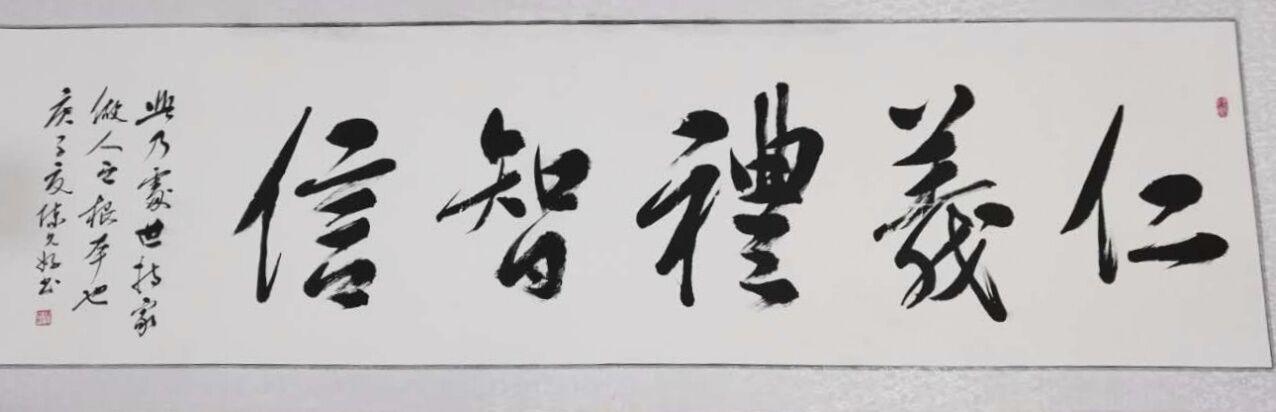 仁義禮智信
此乃處世持家
做人之根本也
庚子夏陳久好書